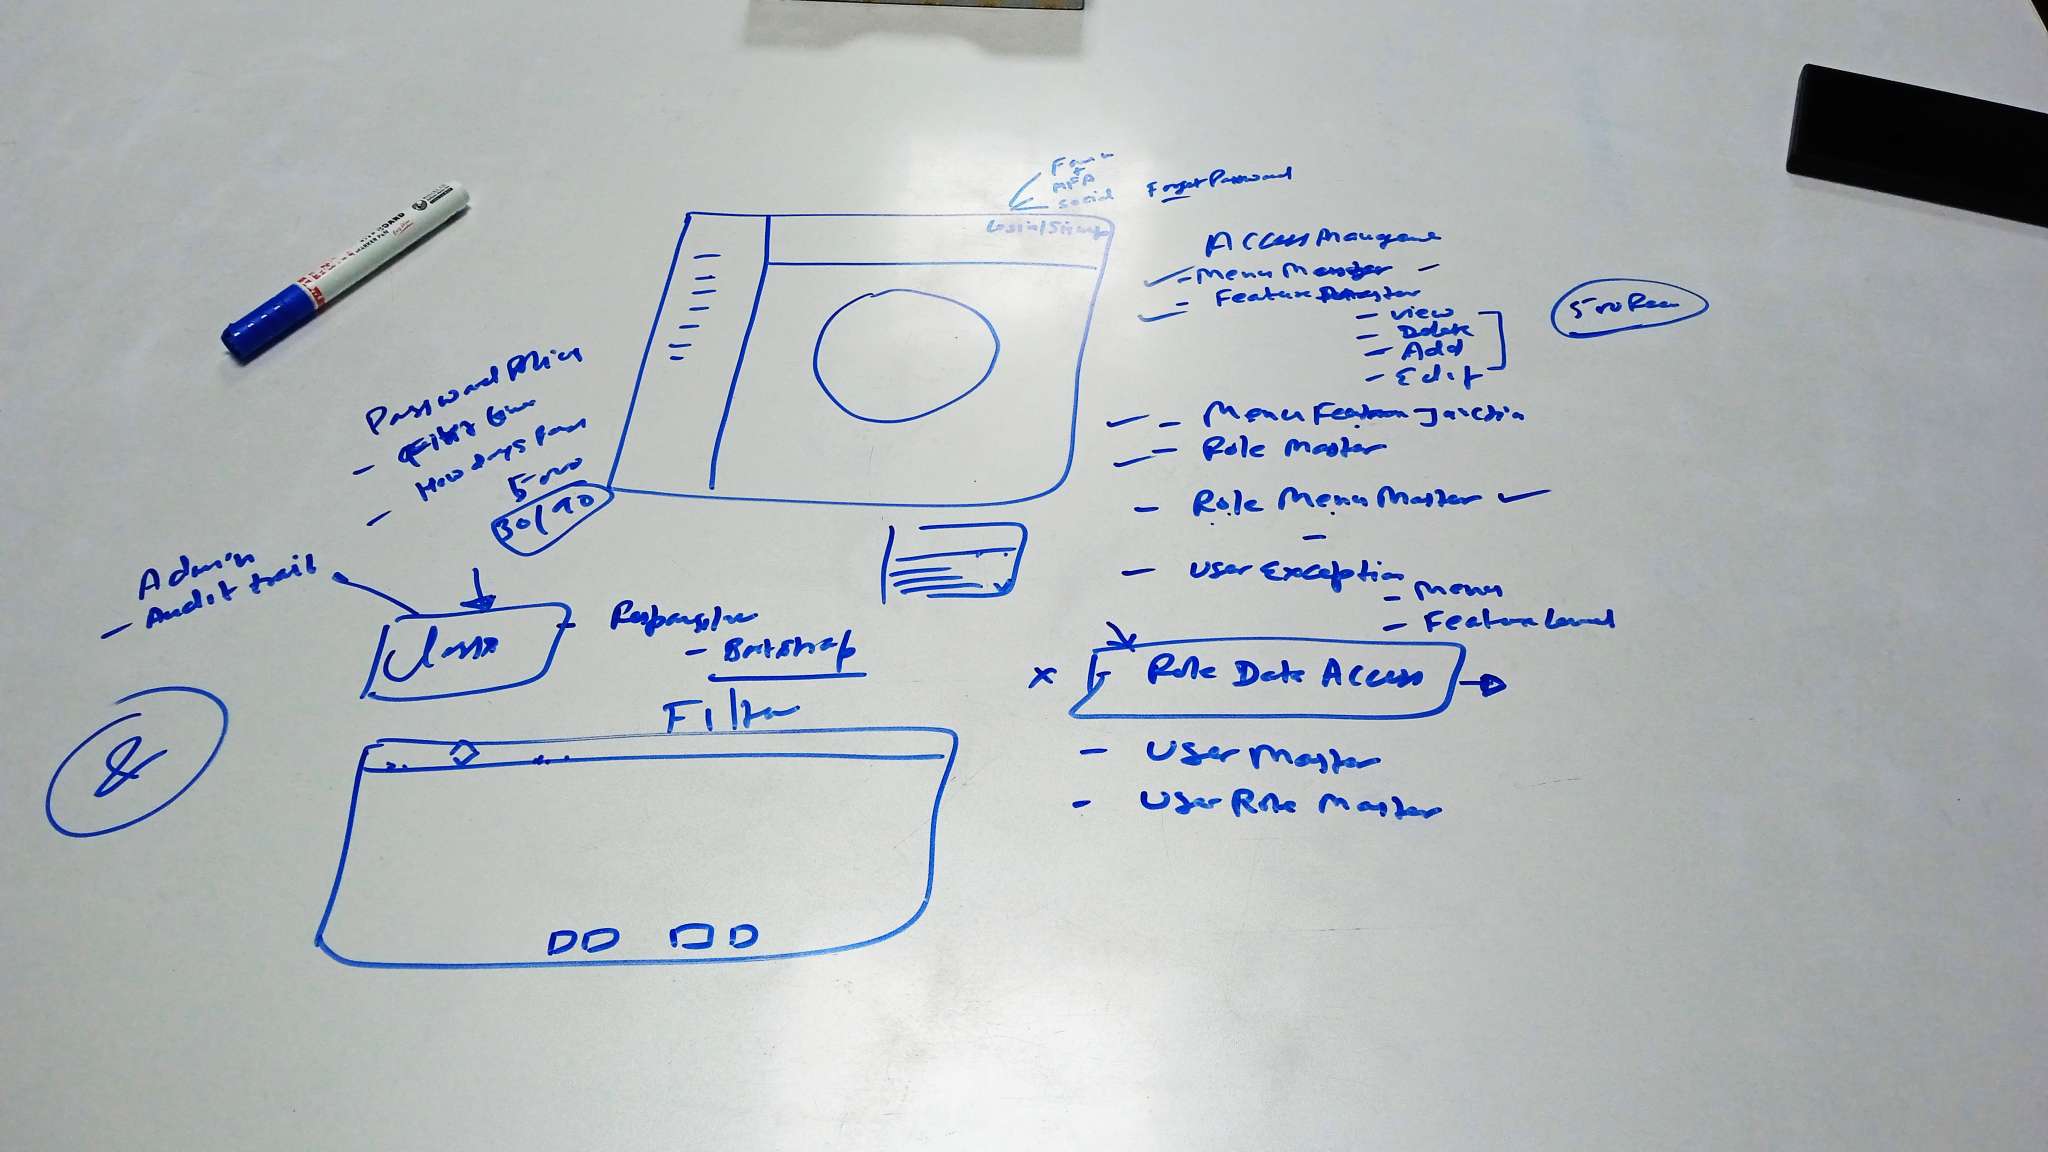 MFA
social
Forgot Password
Login/Signup
Access Manageme
- Menu Master -
- Feature Master
- view
- Delete
- Add
- Edit
- Menu Feature Junction
- Role Master
- Role Menu Master
- User Exception
- Menu
- Feature Level
Role Data Access
x
- User Master
- User Role Master
Password Policy
- First time
- How days pass
30/90
Admin
- Audit trail
- Responsive
- Bootstrap
Filter
&